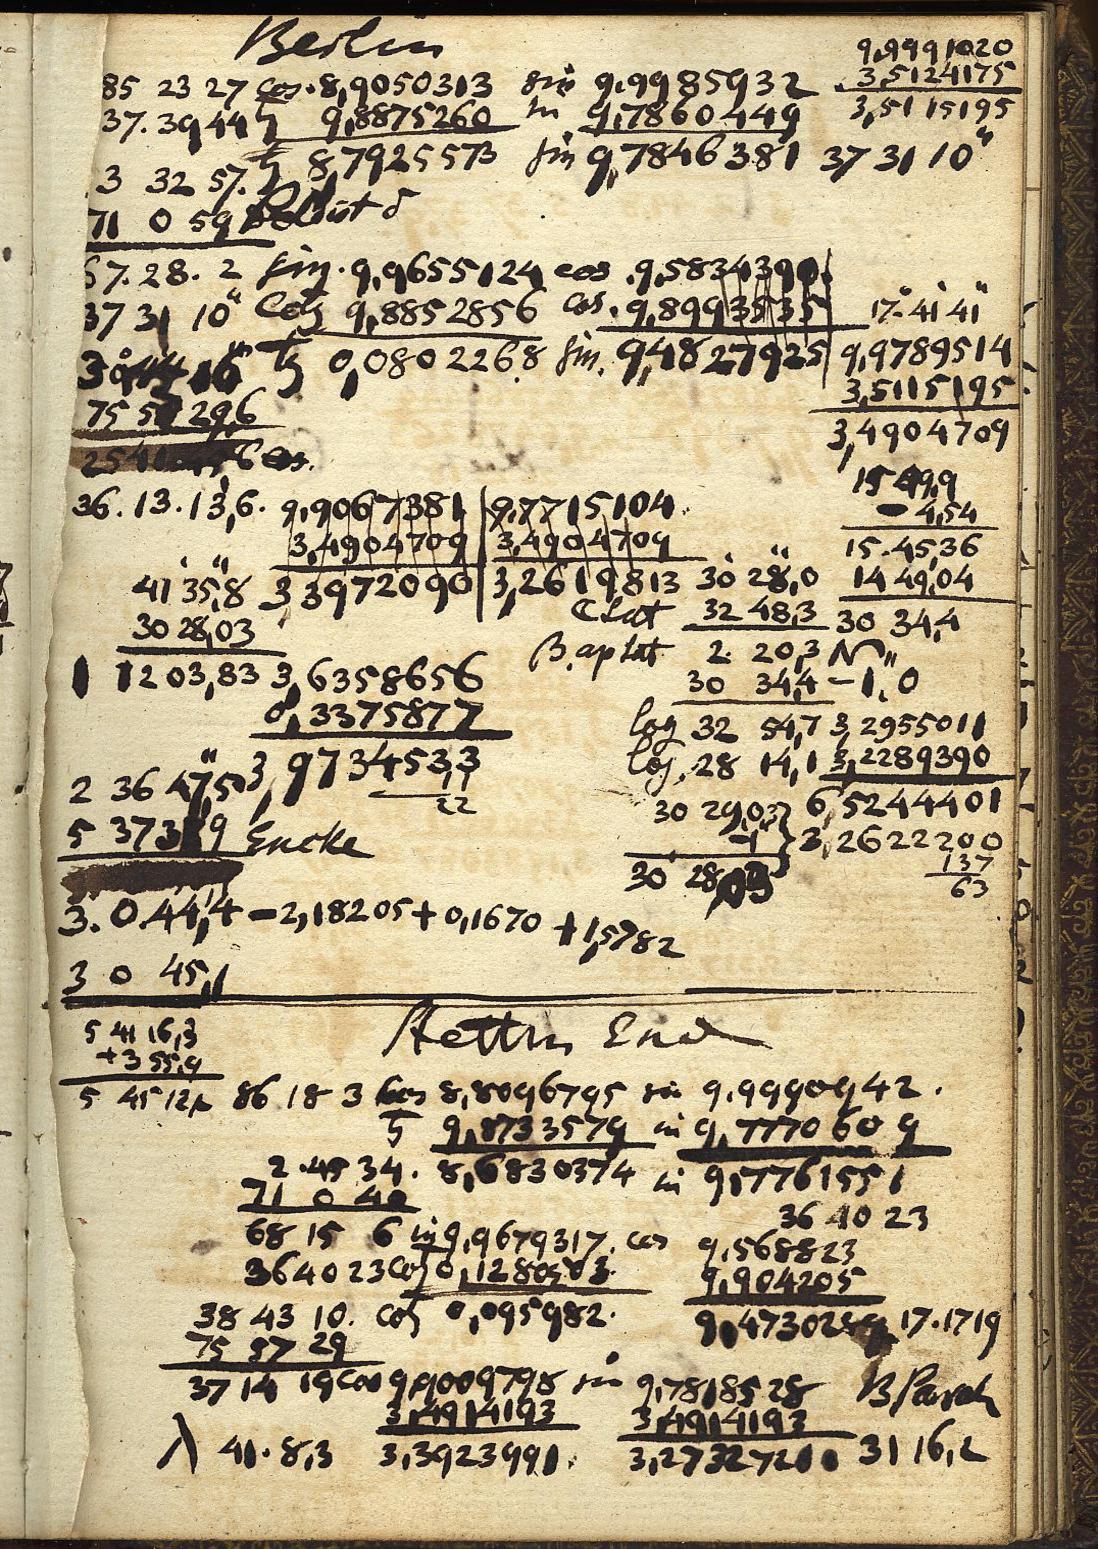 Berlin
9,9991020
3,5124175
3,5115195
85 23 27 Cos. 8,9050313 sin 9.9985932
37.3944 tg 9,8875260 sin 9,7860449
3 32 57. tg 8,7925573 sin 9,7846381 37 31 10"
71 0 59
67.28. 2 sin. 9,9655124 cos .9,5834390
37 31 10" Cotg 9,8852856 cos. 9,8993535
tg 0,0802268 sin. 9,4827925
17° 41' 41"
9,9789514
3,5115195
3,4904709
75 5 29,6
36. 13. 13,6. 9,9067381 9,7715104
3,4904709 3,4904709
41' 35",8 3 3972090 3,2619813 30' 28",0
30 28,03 C lat 32 48,3
1 12 03,83 3,6358656 B. ap lat 2. 20,3
0,3375877 30 34,4
3,9734533
22
15 49,9
- 4,54
15.45,36
14 49,04
30 34,4
-1",0
log 32 54,7 3,2955011
log. 28 14,1 3,2289390
30 29,03 6,5244401
-1 3,2622200
137
30 28,03 63
2 36 47,5
5 37 9 Encke
3. 0.44,4 - 2,18205 + 0,1670 + 1,5782
3 0 45,1
Stettin End
5 41 16,3
+3 55,9
5 45 12,2 86 18 3 Cos 8,8096795 sin 9,9990942.
tg 9,8733579 sin 9,7770609
2.45 34. 8,6830374 sin 9,7761551
71 0 40 36 40 23
68 15 6 sin 9,9679317. cos 9,568823
36 40 23 Cotg 0,1280503. 9,904205
38 43 10. cotg 0,095982. 9,473028 17.17 19
75 57 29
37 14 19 cos 9,9009798 sin 9,7818528
3,4914193 3,4914193
λ 41. 8,3 3,3923991. 3,2732720 31 16,2